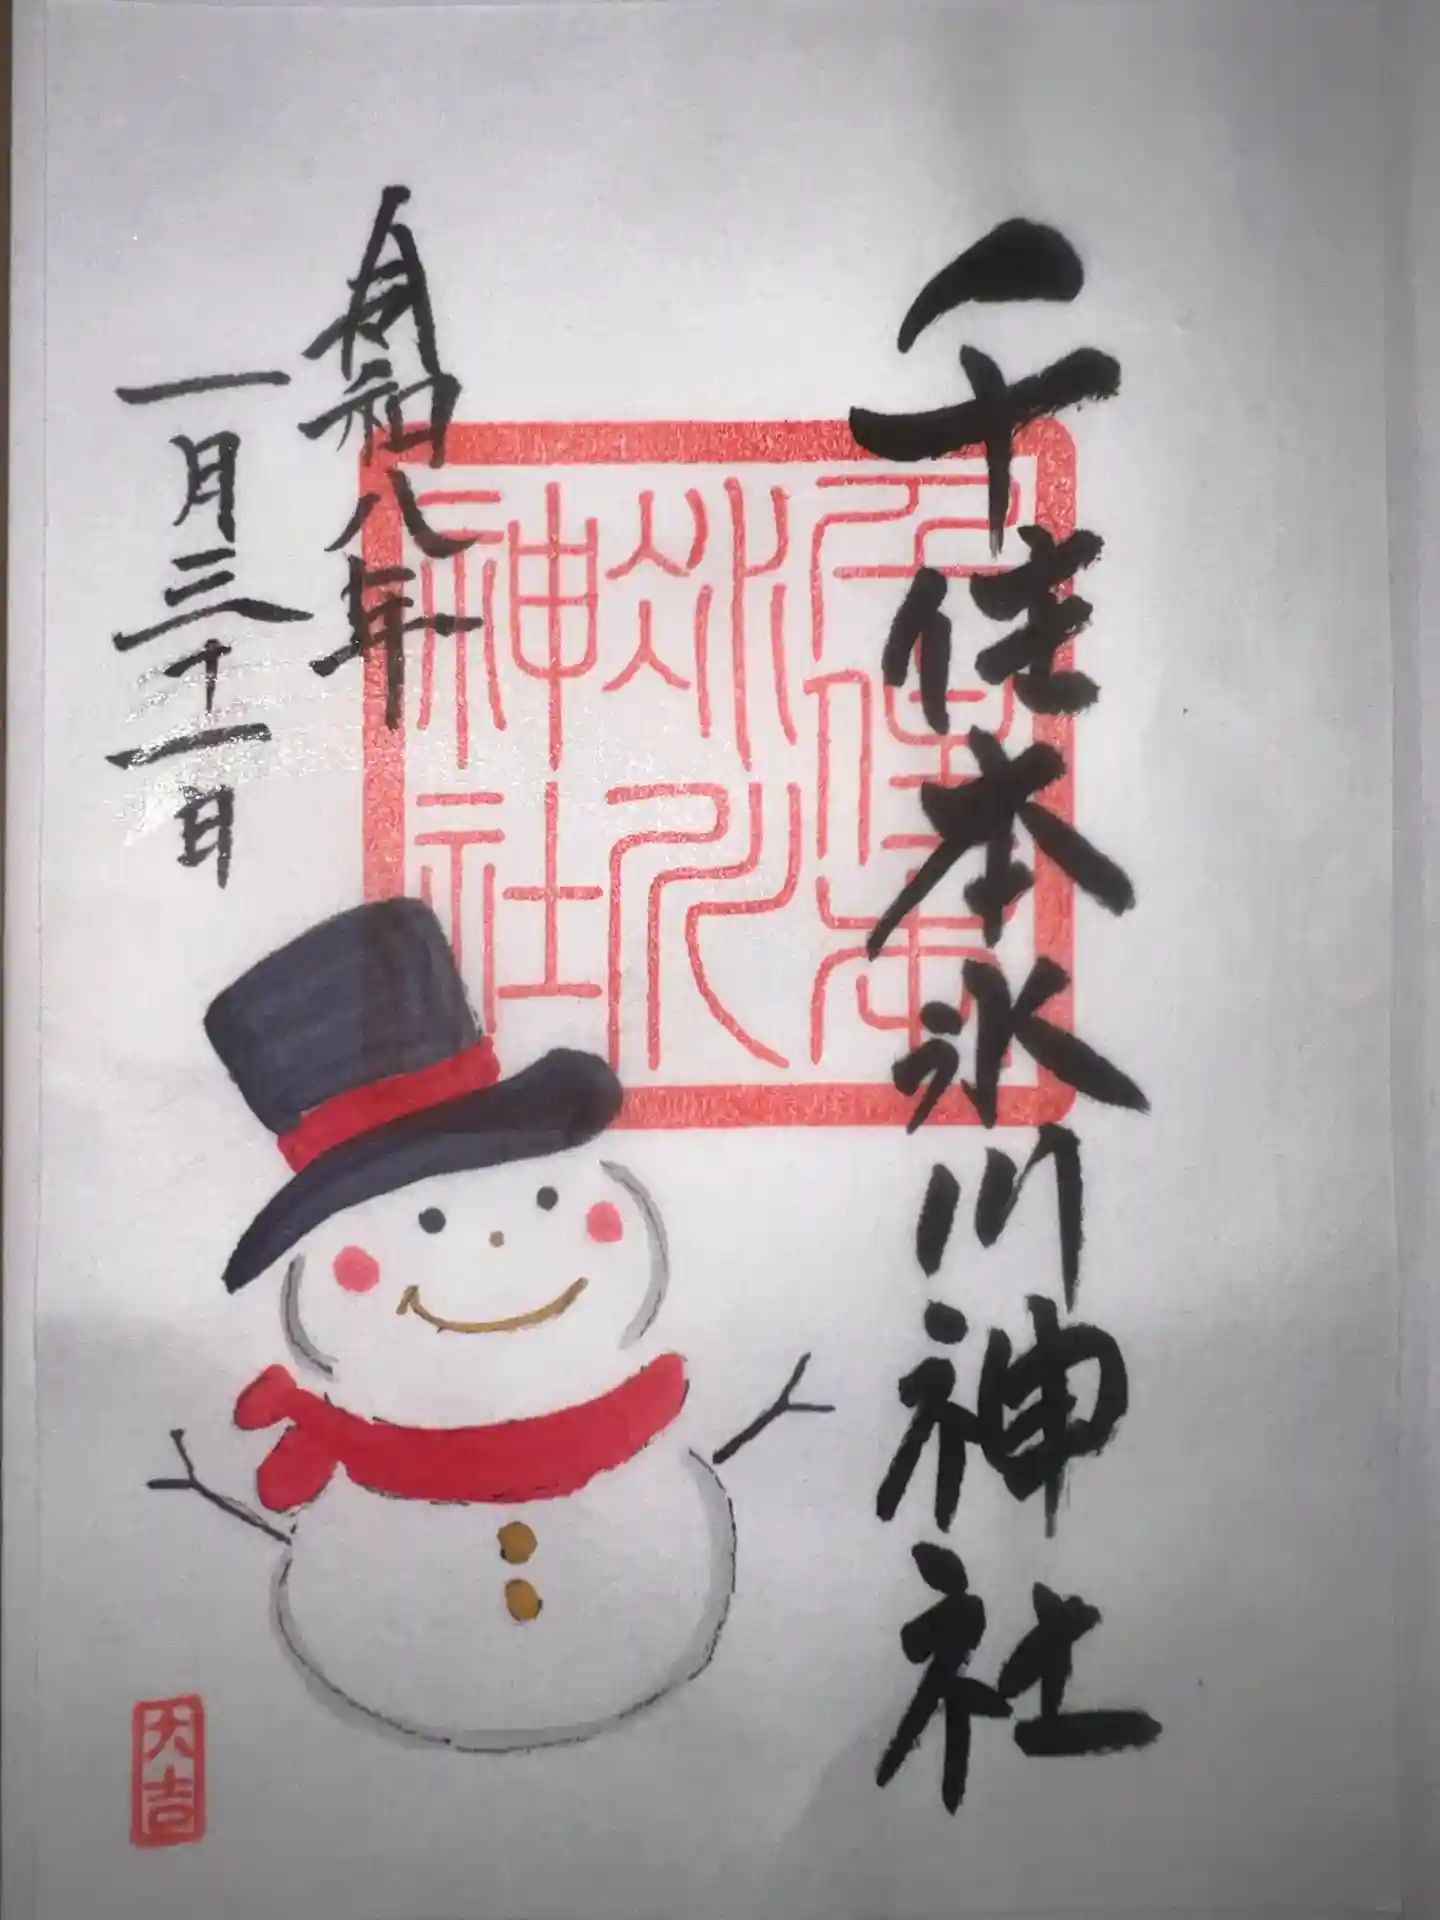 千住本氷川神社
千住本
氷川
神社
令和八年
一月三十一日
大吉